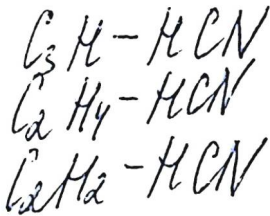 C₃H - HCN
C₂H₄ - HCN
C₂H₂ - HCN